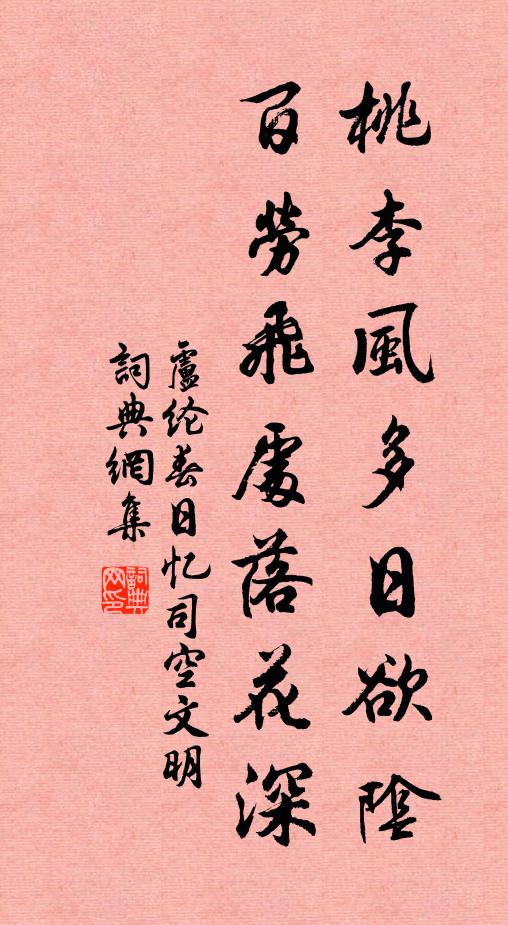 桃李風多日欲陰
百勞飛處落花深
盧纶春日忆司空文明
詞典網集
詞典网印